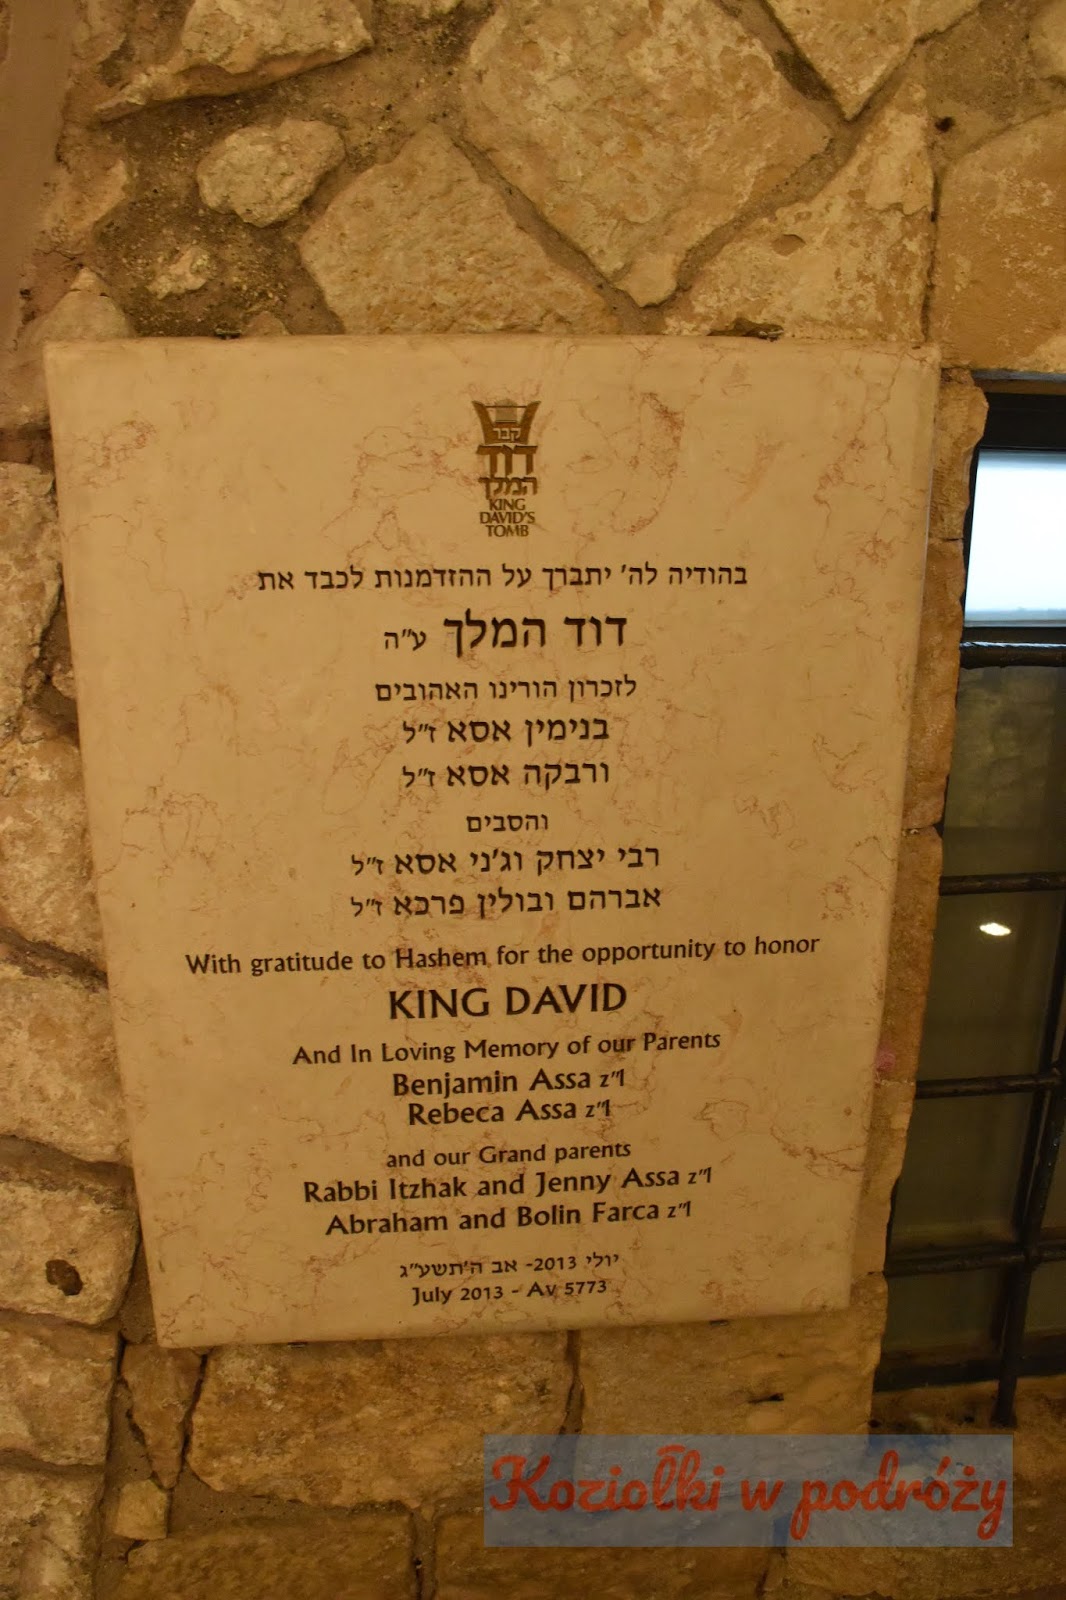 קבר
דוד
המלך
KING
DAVID'S
TOMB
בהודיה לה' יתברך על ההזדמנות לכבד את
דוד המלך ע"ה
לזכרון הורינו האהובים
בנימין אסא ז"ל
ורבקה אסא ז"ל
והסבים
רבי יצחק וג'ני אסא ז"ל
אברהם ובולין פרכא ז"ל
With gratitude to Hashem for the opportunity to honor
KING DAVID
And In Loving Memory of our Parents
Benjamin Assa z"l
Rebeca Assa z"l
and our Grand parents
Rabbi Itzhak and Jenny Assa z"l
Abraham and Bolin Farca z"l
יולי 2013- אב ה'תשע"ג
July 2013 - Av 5773
Koziołki w podróży